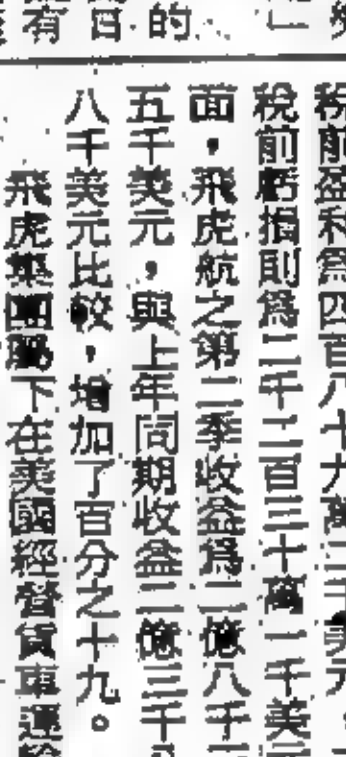 稅前盈利爲四百八十九萬二千美元。
稅前虧損則爲二千二百三十萬一千美元
面，飛虎航之第二季收益爲二億八千
五千美元，與上年同期收益二億三千
八千美元比較，增加了百分之十九。
飛虎集團屬下在美國經營貨車運輸